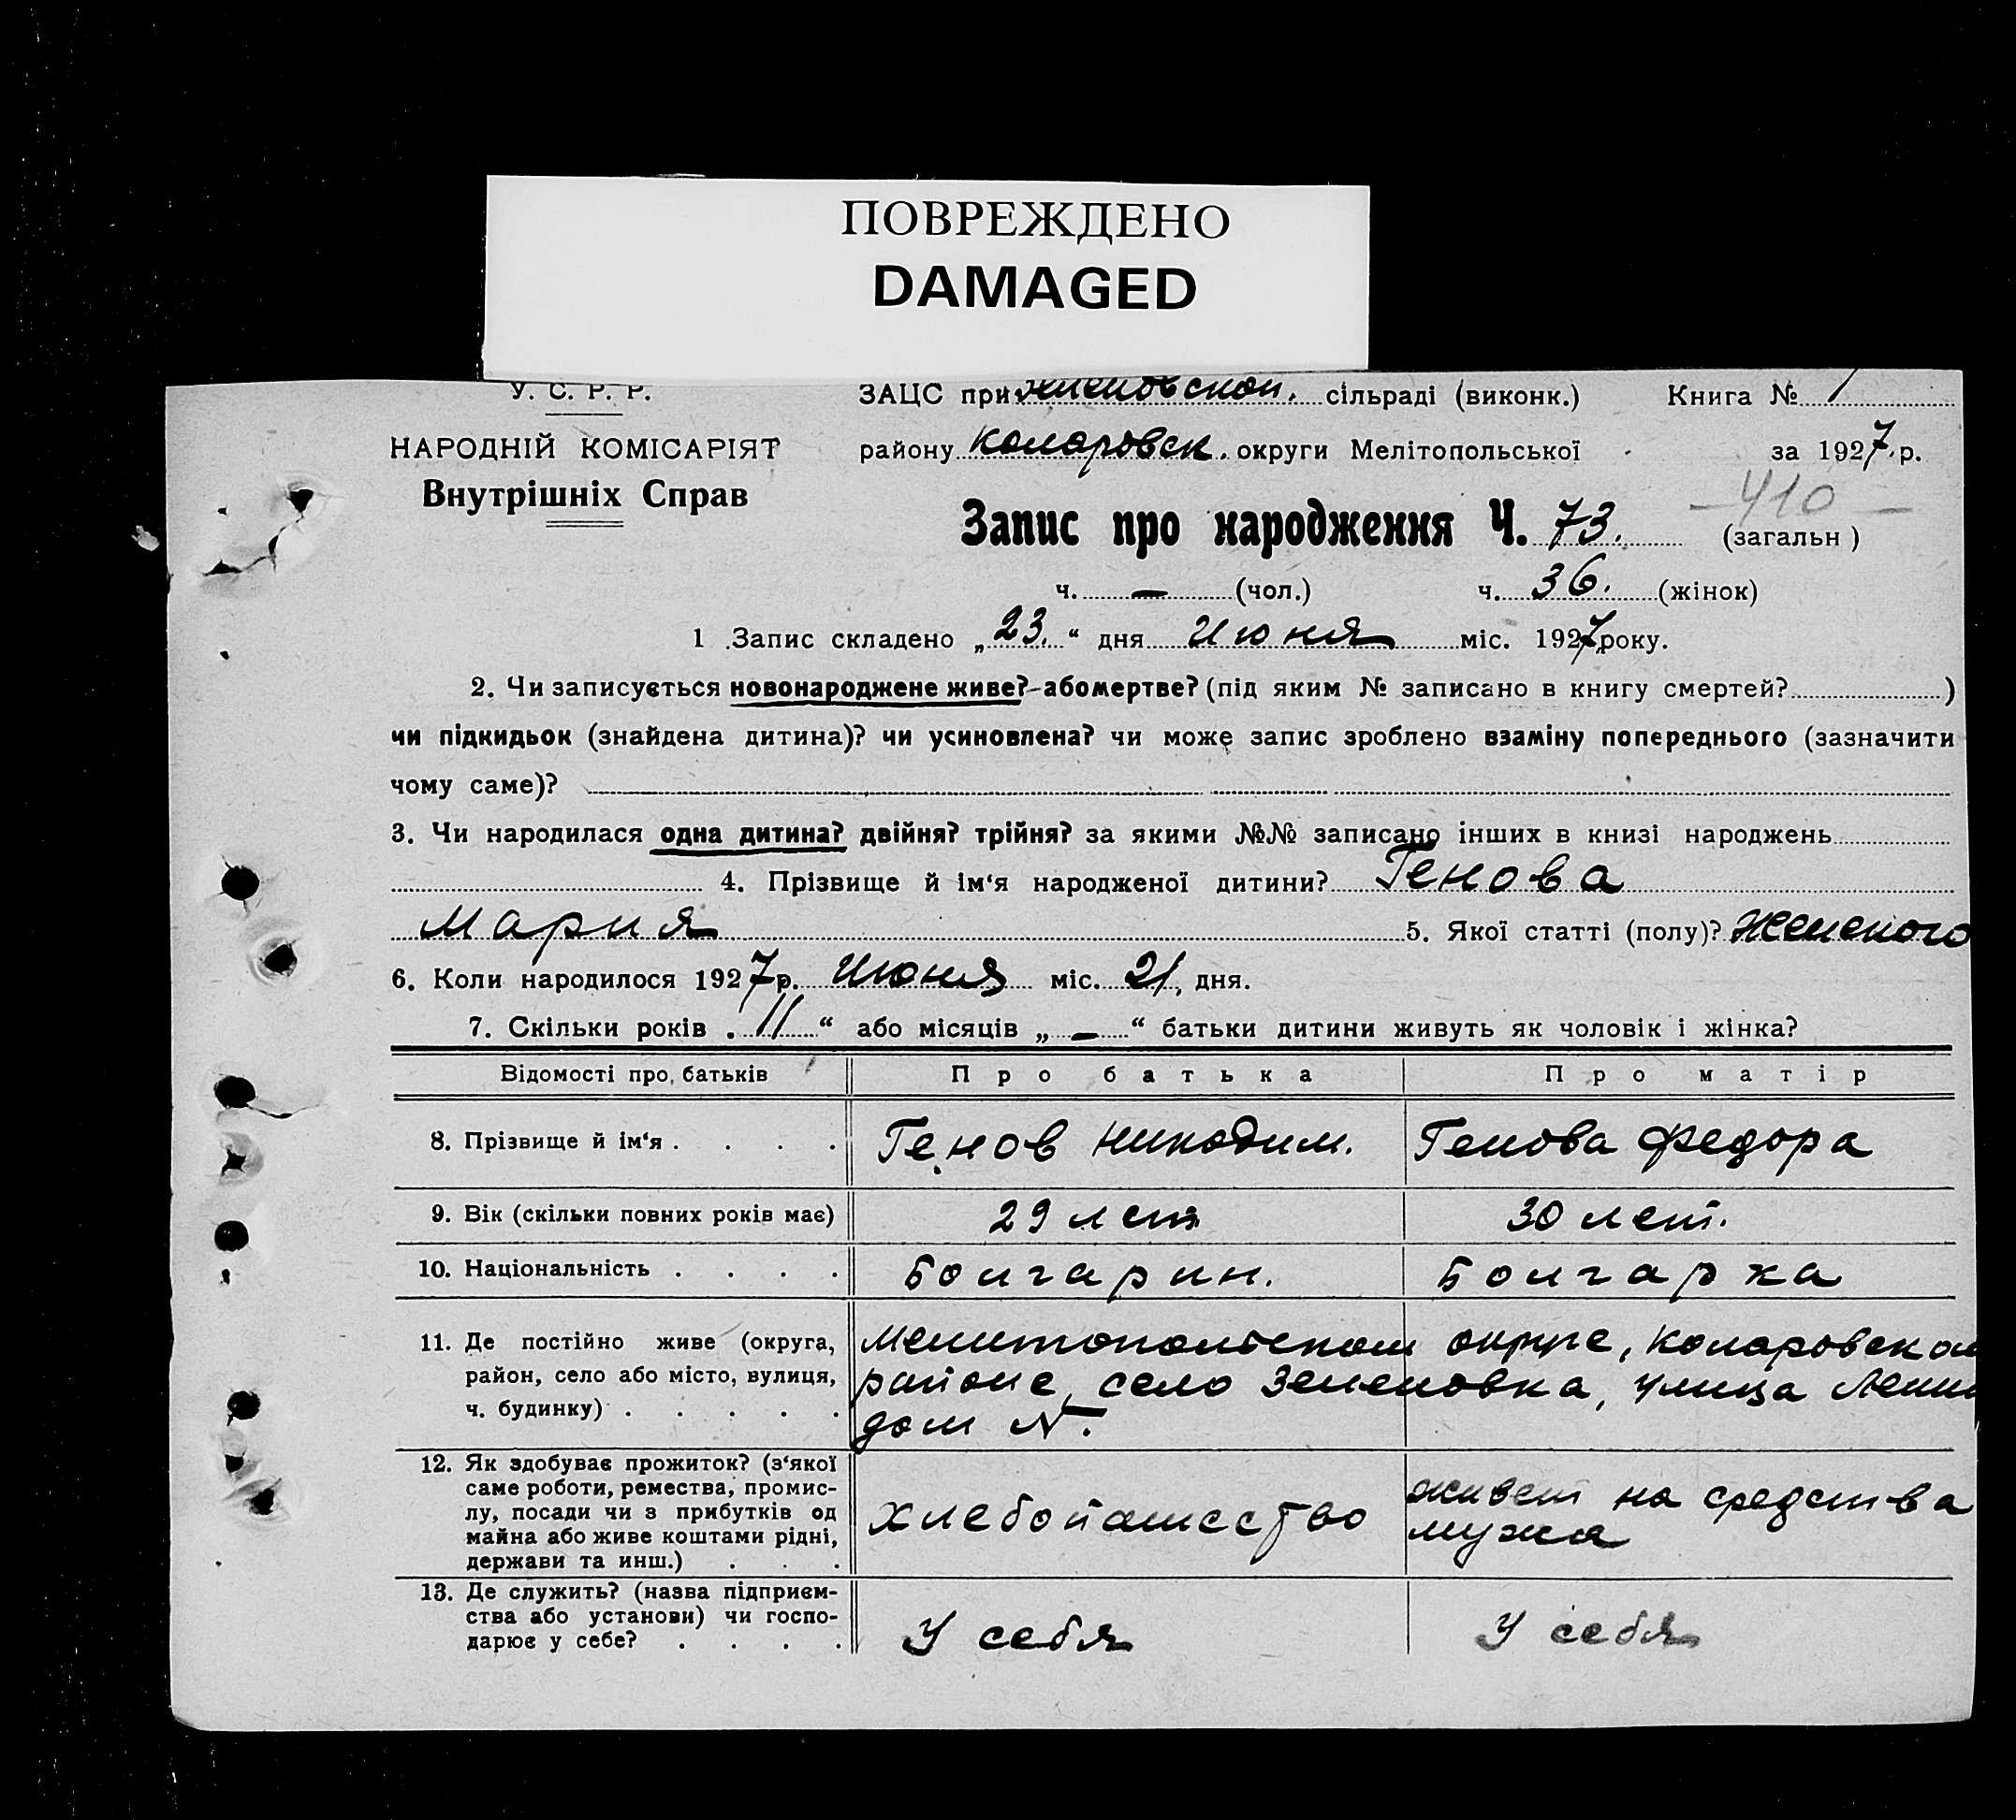 ПОВРЕЖДЕНО
DAMAGED
У. С. Р. Р. ЗАЦС при сільраді (виконк.) Книга № 1
НАРОДНІЙ КОМІСАРІЯТ району Коларовск. округи Мелітопольської за 1927 р.
Внутрішніх Справ
— 410 —
Запис про народження Ч. 73. (загальн )
ч. — (чол.) ч. 36. (жінок)
1 .Запис складено „ 23. “ дня Июня міс. 1927 року.
2. Чи записується новонароджене живе?-або мертве? (під яким № записано в книгу смертей? )
чи підкидьок (знайдена дитина)? чи усиновлена? чи може запис зроблено взаміну попереднього (зазначити
чому саме)?
3. Чи народилася одна дитина? двійня? трійня? за якими №№ записано інших в книзі народжень
4. Прізвище й ім‘я народженої дитини? Генова
Мария 5. Якої статті (полу)? Женского
6. Коли народилося 1927 р. Июня міс. 21, дня.
7. Скільки років . 11 “ або місяців „ — “ батьки дитини живуть як чоловік і жінка?
Відомості про батьків Про батька Про матір
8. Прізвище й ім‘я . . . . Генов Никодим. Генова Федора
9. Вік (скільки повних років має) 29 лет 30 лет.
10. Національність . . . . Болгарин. Болгарка
11. Де постійно живе (округа, Мелитопольском округе, Коларовском
район, село або місто, вулиця, районе, село Зеленовка, улица Ленин
ч. будинку) . . . . . дом №.
12. Як здобуває прожиток? (з‘якої
саме роботи, ремества, промис-
лу, посади чи з прибутків од
майна або живе коштами рідні,
держави та инш.) . . .
хлебопашество
живет на средства
мужа
13. Де служить? (назва підприєм-
ства або установи) чи госпо-
дарює у себе? . . . .
У себя У себя